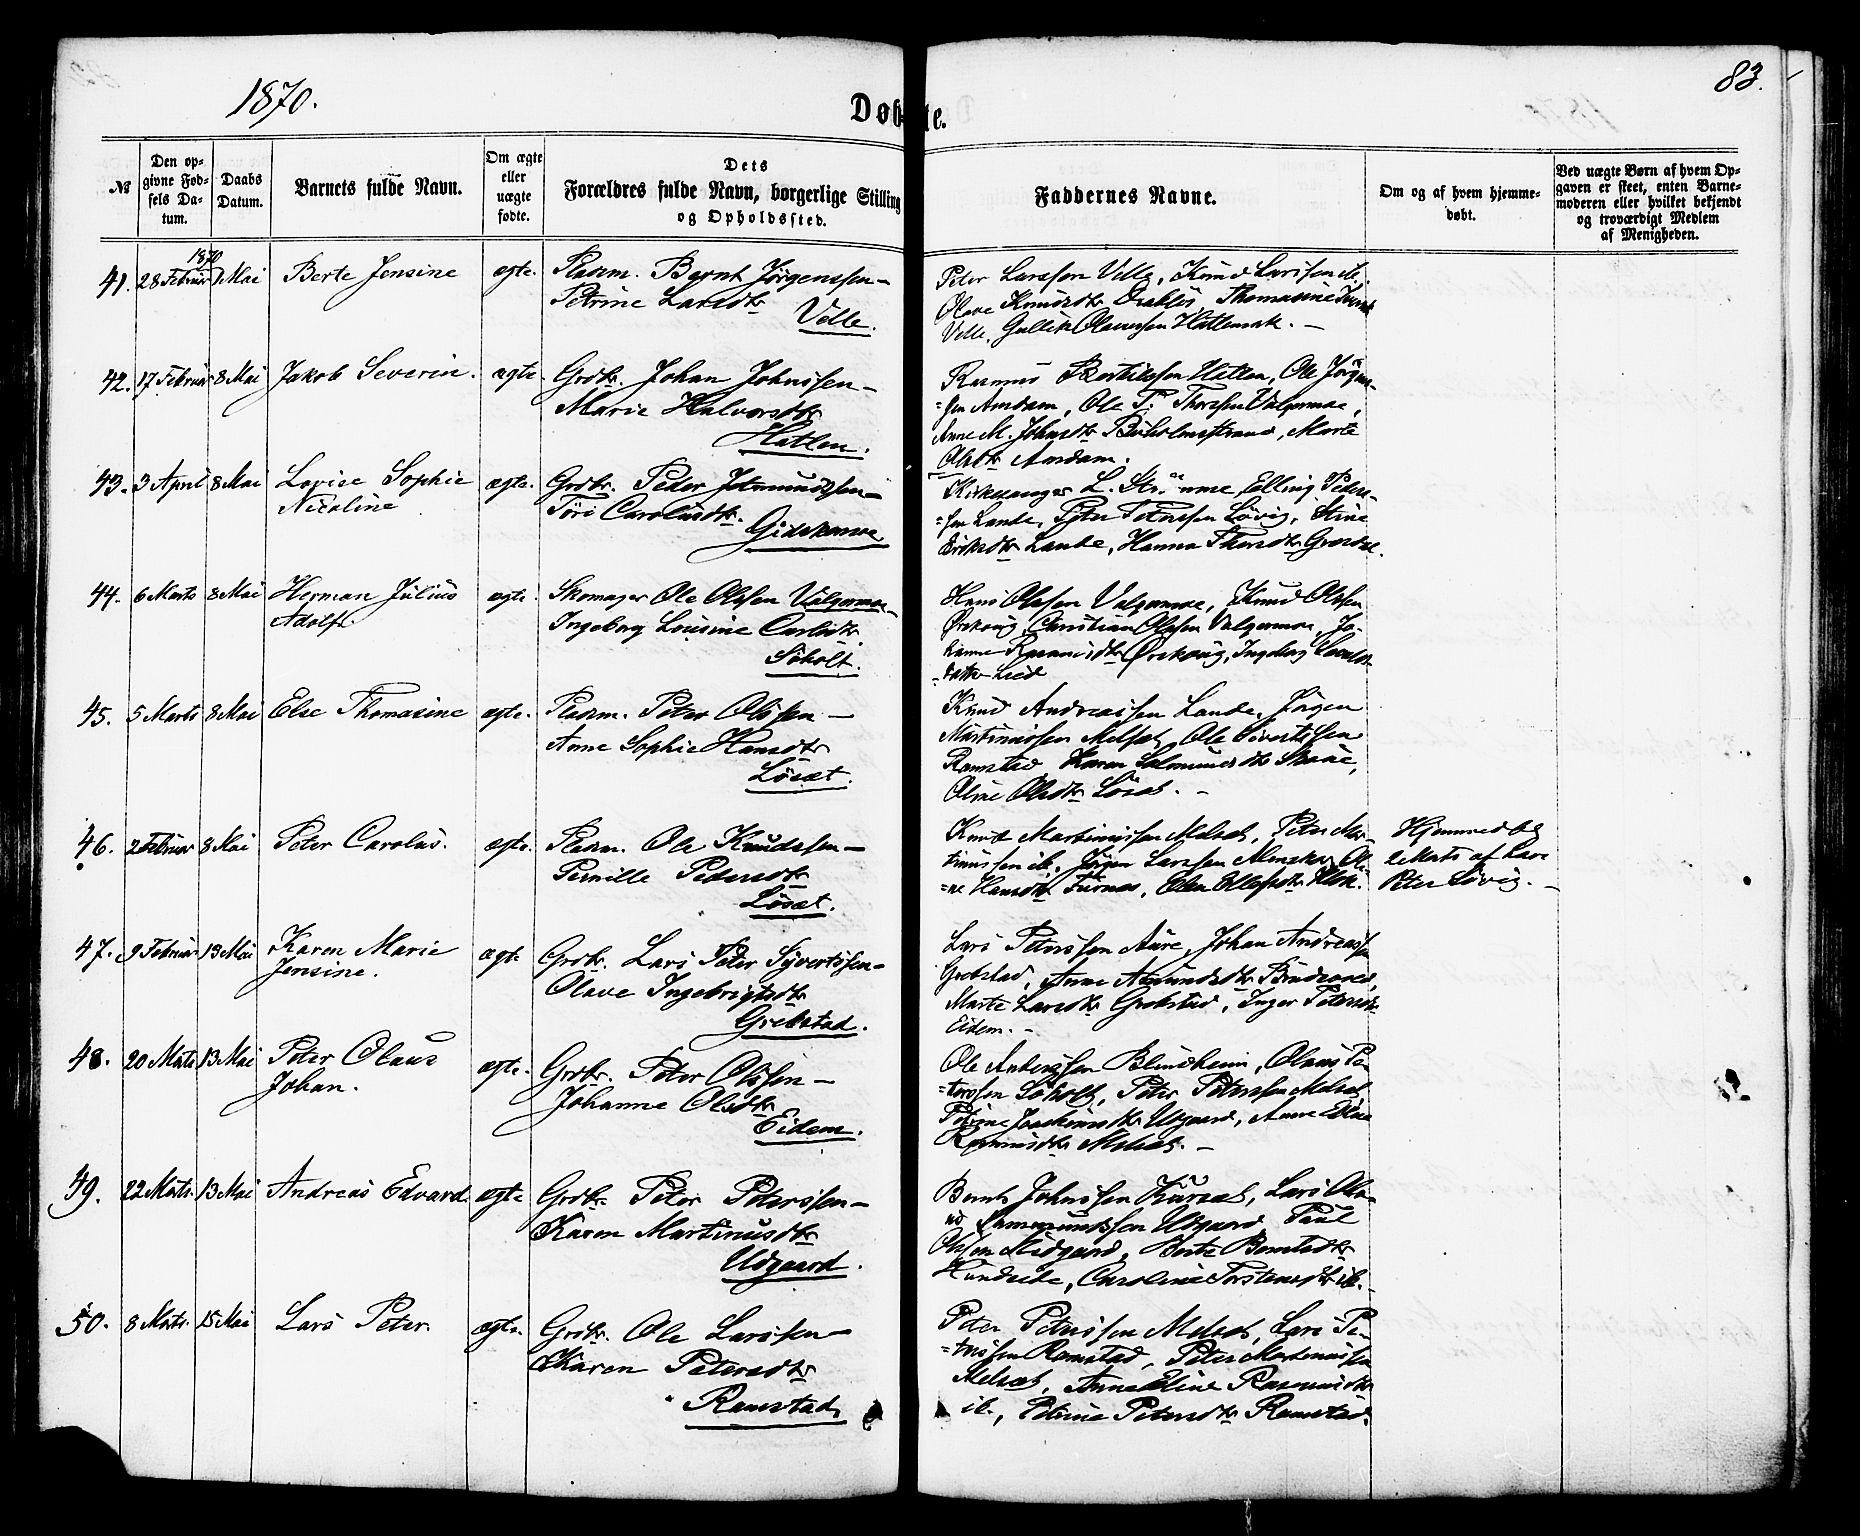 1870.
83.
Døbte.
№
Den opgivne Fødsels Datum.
Daabs Datum.
Barnets fulde Navn.
Om ægte eller uægte fødte.
Dets Forældres fulde Navn, borgerlige Stilling og Opholdssted.
Faddernes Navne.
Om og af hvem hjemmedøbt.
Ved uægte Børn af hvem Opgaven er skeet, enten Barnemoderen eller hvilket bekjendt og troværdigt Medlem af Menigheden.
1870
41. 28 Februar 1 Mai Berte Jensine ægte. Pladsm. Bernt Jørgenssen—
Petrine Larsdtr
Velle.
Peter Larssen Velle, Knud Larssen ib.
Olave Knudsdtr Thomasine
Velle, Gullik Olaussen Hatlemark. —
42. 17 Februar 8 Mai Jakob Severin. ægte. Grdbr. Johan Johnssen—
Marie Halvorsdtr
Hatlen.
Rasmus Bertilssen Hatlen, Ole Jørgen-
=sen Amdam, Ole P. Thorssen Valgermoe,
Anne M. Johnsdtr Buholmstrand, Marte
Olsdtr Amdam.
43. 3 April 8 Mai Lovise Sophie ægte. Grdbr. Peder Jetmundssen—
Nicoline
Tøri Carolusdtr.
Gidskemoe
Kirkesanger L. Elling Peder-
=sen Lande, Peter Peterssen Løvig, Stine
Eriksdtr Lande, Hanna Thorsdtr
44. 6 Marts 8 Mai Herman Julius ægte. Skomager Ole Olssen Valgermoe—
Adolf.
Ingeborg Lousine Carlsdtr
Søholt.
Hans Olssen Valgermoe, Knud Olssen
Ørskoug, Christian Olssen Valgermoe, Jo-
hanne Rasmusdtr Ørskoug, Ingeborg
=datter Lied
45. 5 Marts 8 Mai Else Thomasine ægte. Pladsm. Peter Olssen —
Anne Sophie Hansdtr
Løsæt.
Knud Andreassen Lande, Jørgen
Martinussen Melsæt, Ole Sivertssen
Ramstad Karen Salomonsdtr
Oline Olsdtr Løsæt. —
46. 2 Februar 8 Mai Peter Carolus. ægte. Pladsm. Ole Knudssen—
Pernille Pedersdtr
Løsæt.
Knud Martinussen Melsæt, Peter Mar-
tinussen ib, Jørgen Larssen Oli-
=ne Hansdtr Furnæs, Elen Ellefsdtr
Hjemmedøbt
2 Marts af Lars
Peter Løvig. —
47. 9 Februar 13 Mai Karen Marie ægte Grdbr. Lars Peter Syvertssen—
Jensine.
Olave Ingebrigtsdtr
Grebstad.
Lars Peterssen Aure, Johan Andreassen
Grebstad, Anne Amundsdtr
Marte Larsdtr Grebstad, Inger Petersdtr
Eidem. —
48. 20 Marts 13 Mai Peter Olaus ægte. Grdbr. Peter Olssen —
Johan.
Johanne Olsdtr
Eidem.
Ole Anderssen Blindheim, Olaus Pe-
=terssen Søholt, Peter Peterssen Melsæt
Petrine Joachimsdtr Udgaard, Anne Eline
Rasmusdtr Melsæt. —
49. 22 Marts. 13 Mai Andreas Edvard ægte Grdbr. Peter Peterssen—
Karen Martinusdtr
Udgaard.
Bernt Johnssen Kursæt, Lars
Udgaard, Paul
Olssen Midgaard, Berte
Hundeide, Caroline Torstensdtr ib.
50. 8 Marts. 15 Mai Lars Peter. ægte. Grdbr. Ole Larssen—
Karen Petersdtr
Ramstad.
Peter Peterssen Melsæt, Lars Pe-
=terssen Ramstad, Peter Martinussen
Melsæt, Anne Eline Rasmusdtr
ib., Petrine Petersdtr Ramstad.